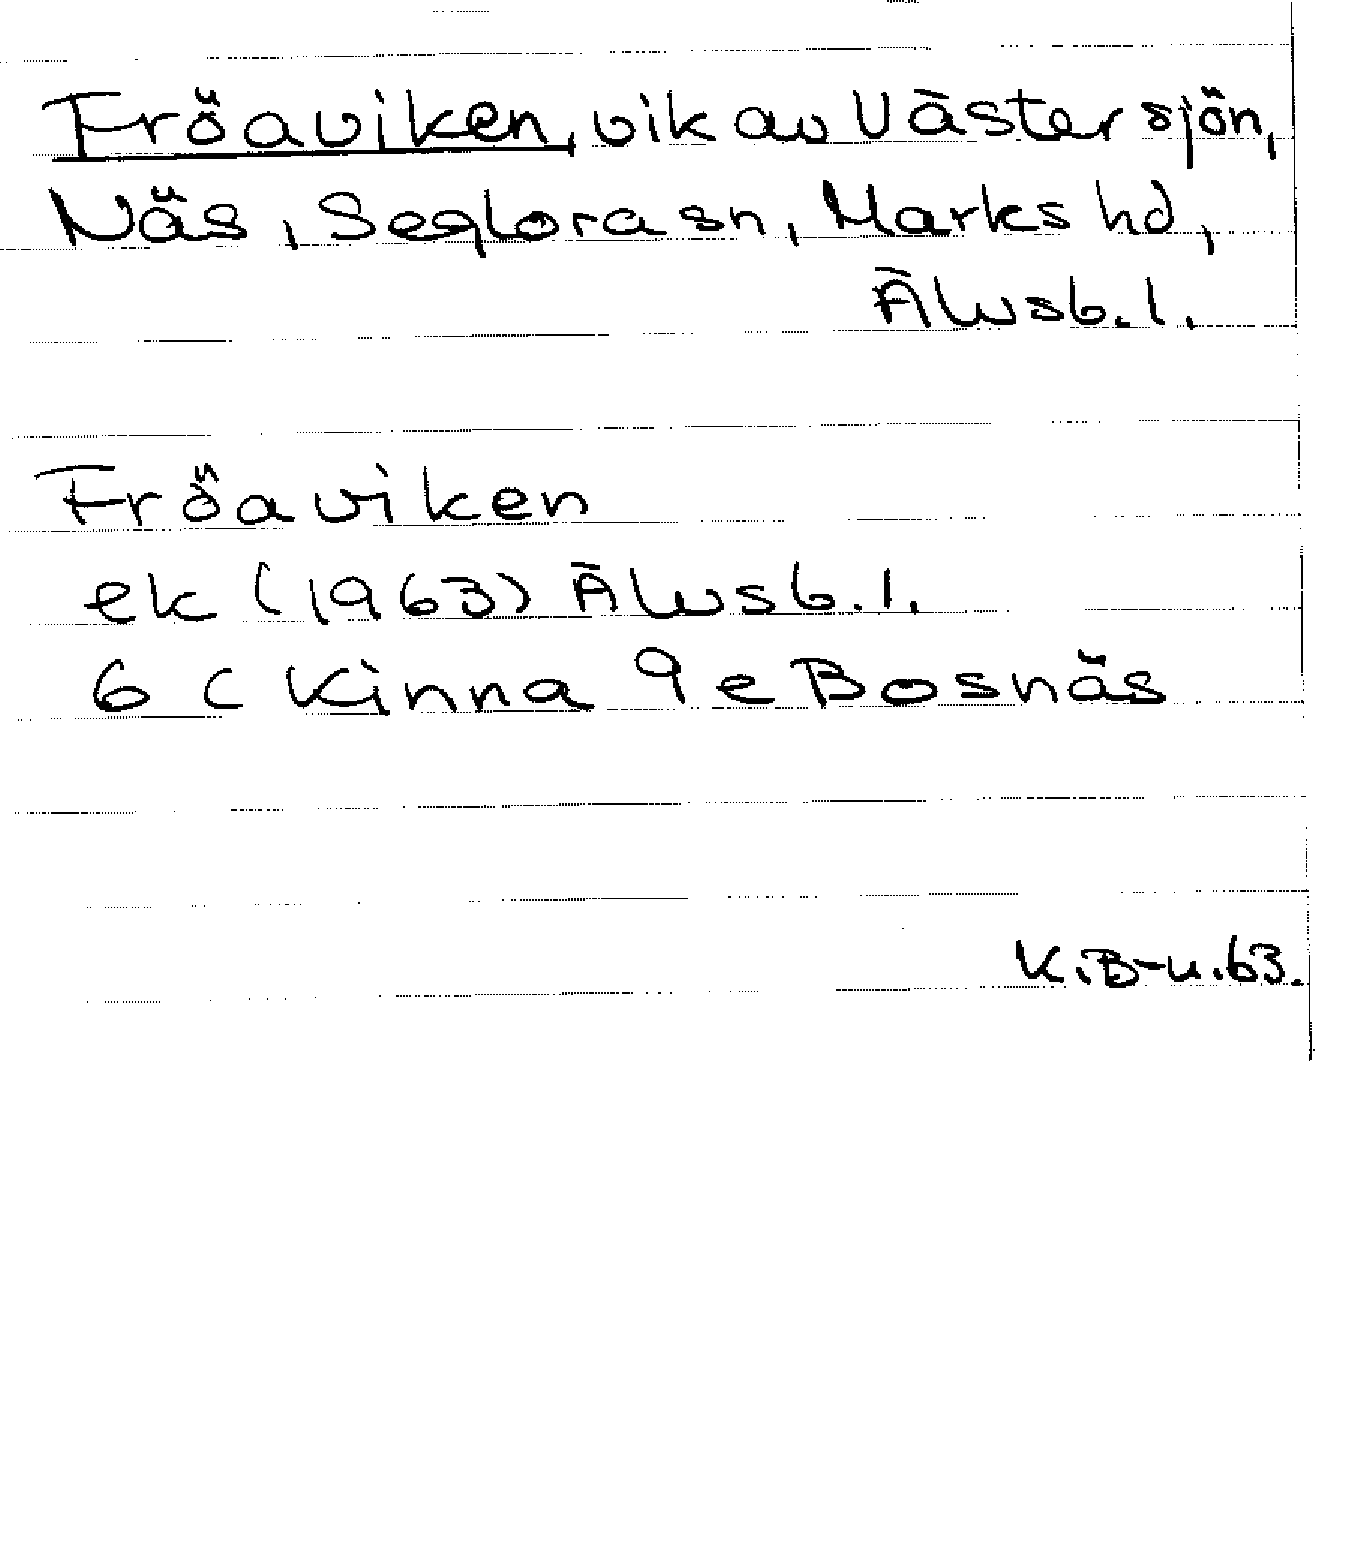 Fröaviken, vik av Västersjön,
Näs, Seglora sn, Marks hd,
Älvsb. l.
Fröaviken
ek (1963) Älvsb. l.
6 C Kinna 9 e Bosnäs
K.B-u.63.